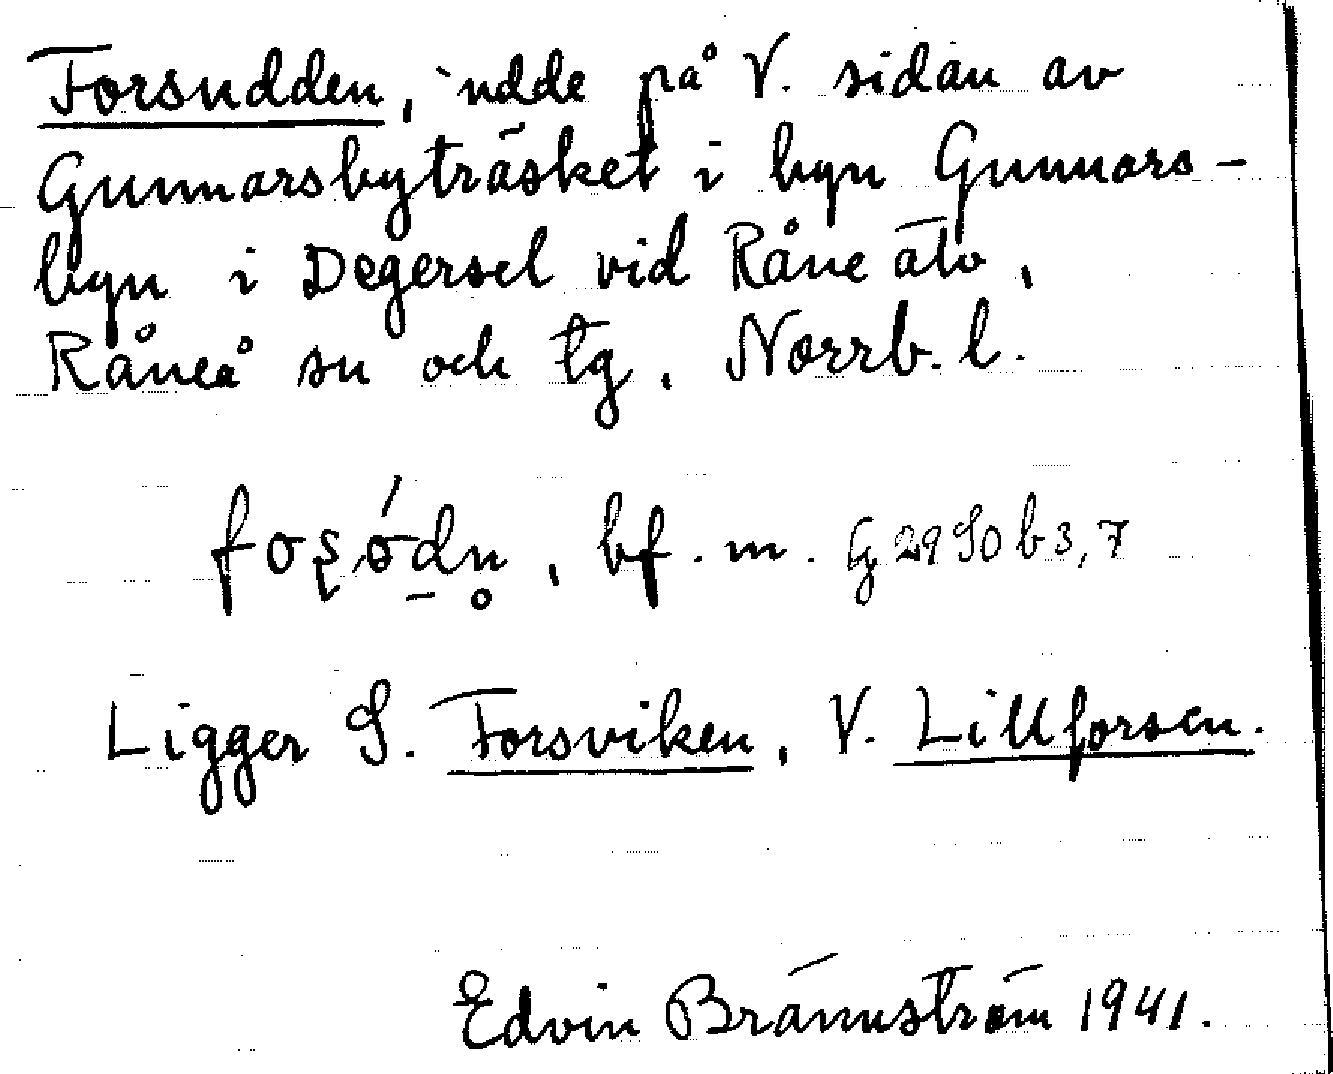 Forsudden, udde på V. sidan av
Gunnarsbyträsket i byn Gunnars-
byn i Degersel vid Råne älv,
Råneå sn och tg, Norrb. l.
bf. m. G 29 SO b 3, 7
Ligger S. Forsviken, V. Lillforsen.
Edvin Brännström 1941.